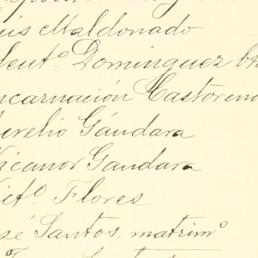 uis Maldonado
leut.º Dominguez
ncarnación Castoren
urelio Gándara
icanor Gandara
it.º Flores
sé Santos, matrim.º